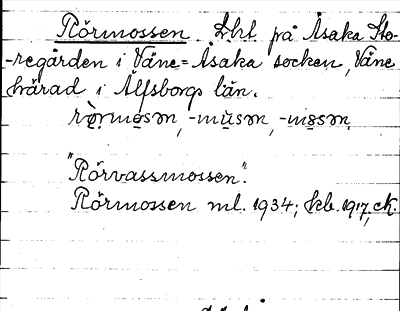 Rörmossen. Lht på Åsaka Sto-
-regården i Väne-Åsaka socken, Väne
härad i Älfsborgs län.
-mu̇sən,
"Rörvassmossen".
Rörmossen ml. 1934; kb. 1917, ek.